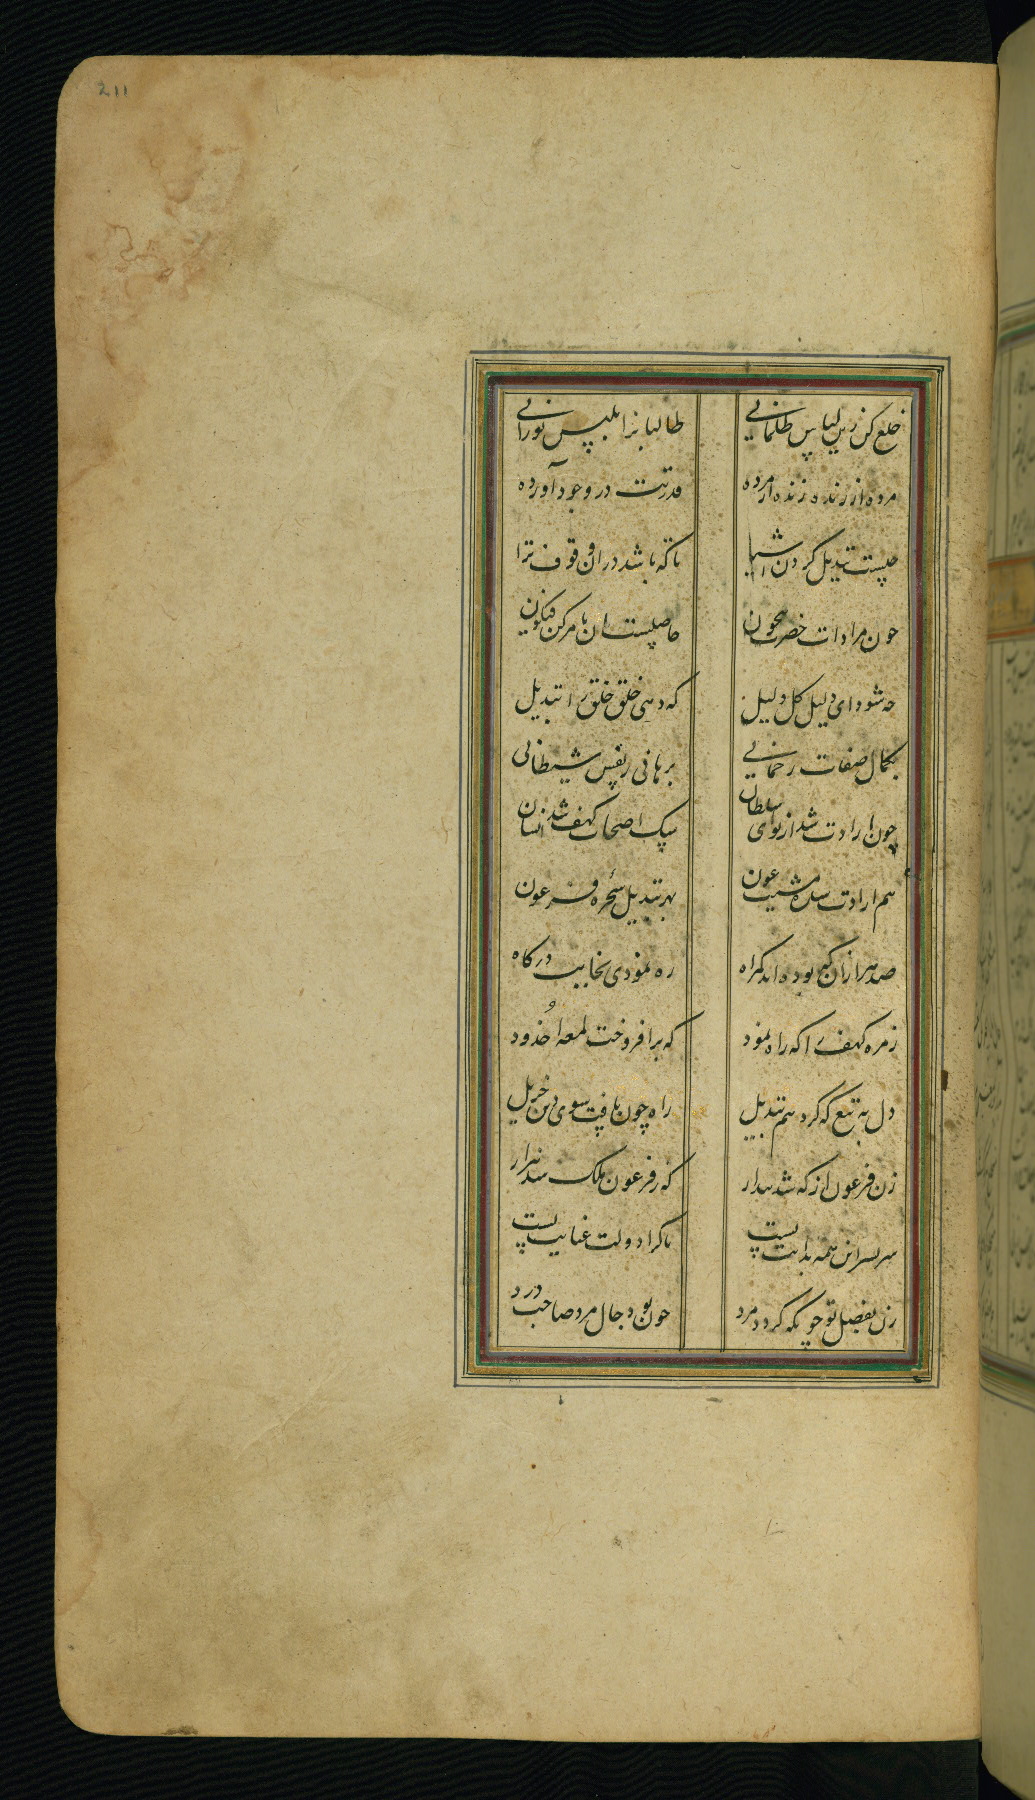 211
خلع کن زین لباس ظلمانی طالبانرا بلبس نورانی
مرده از زنده زنده از مرده قدرتت در وجود آورده
چیست تبدیل کردن اشیا تا که باشد در ان وقوف ترا
حون مرادات حاصلست ان بامر کن فیکون
چه شود ای دلیل کل دلیل که دهی خلق خلق را تبدیل
بکمال صفات رحمانی برهانی ز نفس شیطانی
چون ارادت شد از تو ای سلطان سک اصحاب کهف شد انسان
هم ارادت شده مشیت عون بهر تبدیل سحره فرعون
صد هزاران کبر بوده اند کمراه ره نمودی بخابیت درکاه
زمره کهف را که راه نمود که برافروخت لمعه اخدود
دل به تبع که کرد هم تبدیل راه چون یافت سوی دین
زن فرعون از که شد بیدار که ز فرعون ملک شد بیزار
سر بسر این همه بدایت تست تا کرا دولت عنایت تست
زن بفضل تو حونکه کردد مرد حون بود حال مرد صاحب درد